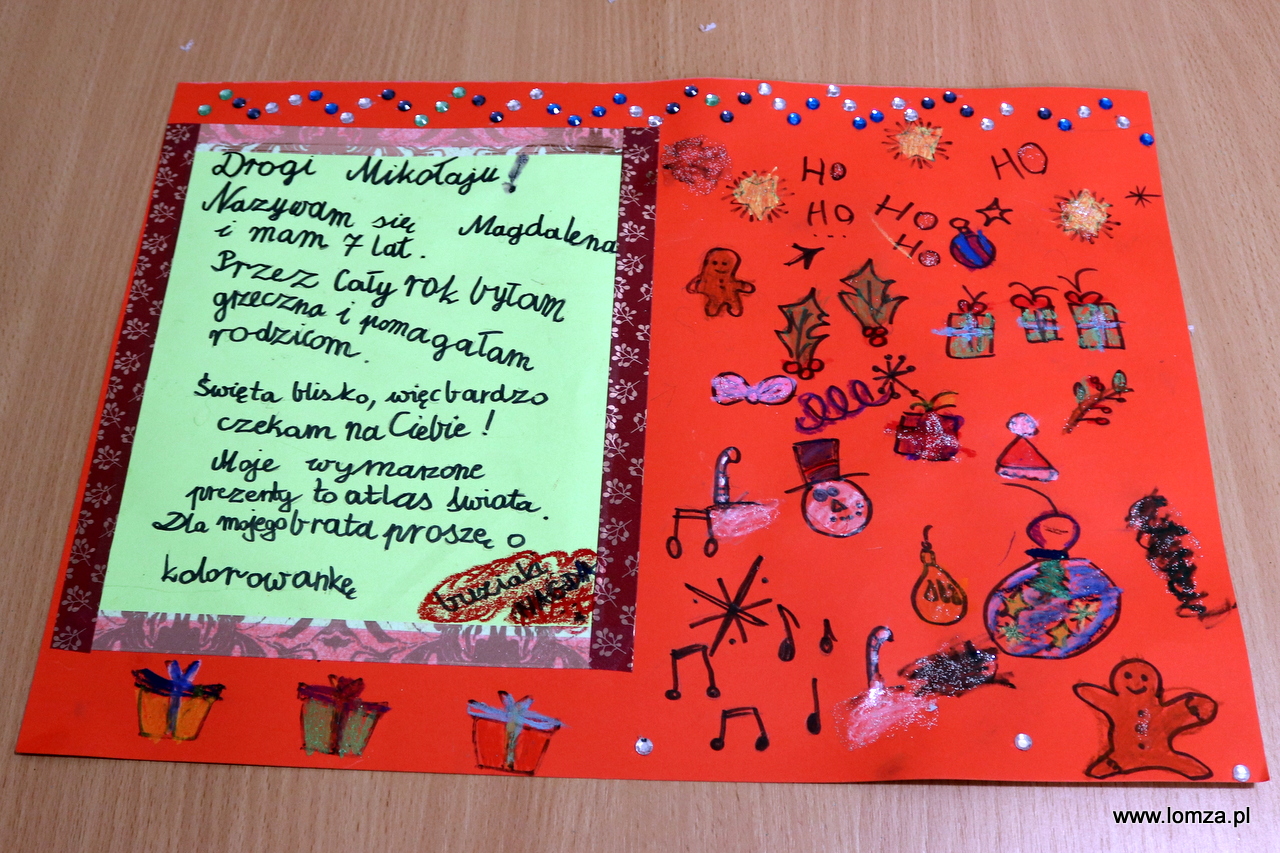 Drogi Mikołaju!
Nazywam się Magdalena
i mam 7 lat.
Przez cały rok byłam
grzeczna i pomagałam
rodzicom.
Święta blisko, więc bardzo
czekam na Ciebie!
Moje wymarzone
prezenty to atlas świata.
Dla mojego brata proszę o
kolorowankę
buziaki
MAGDA
HO HO
HO HO
Ho
www.lomza.pl